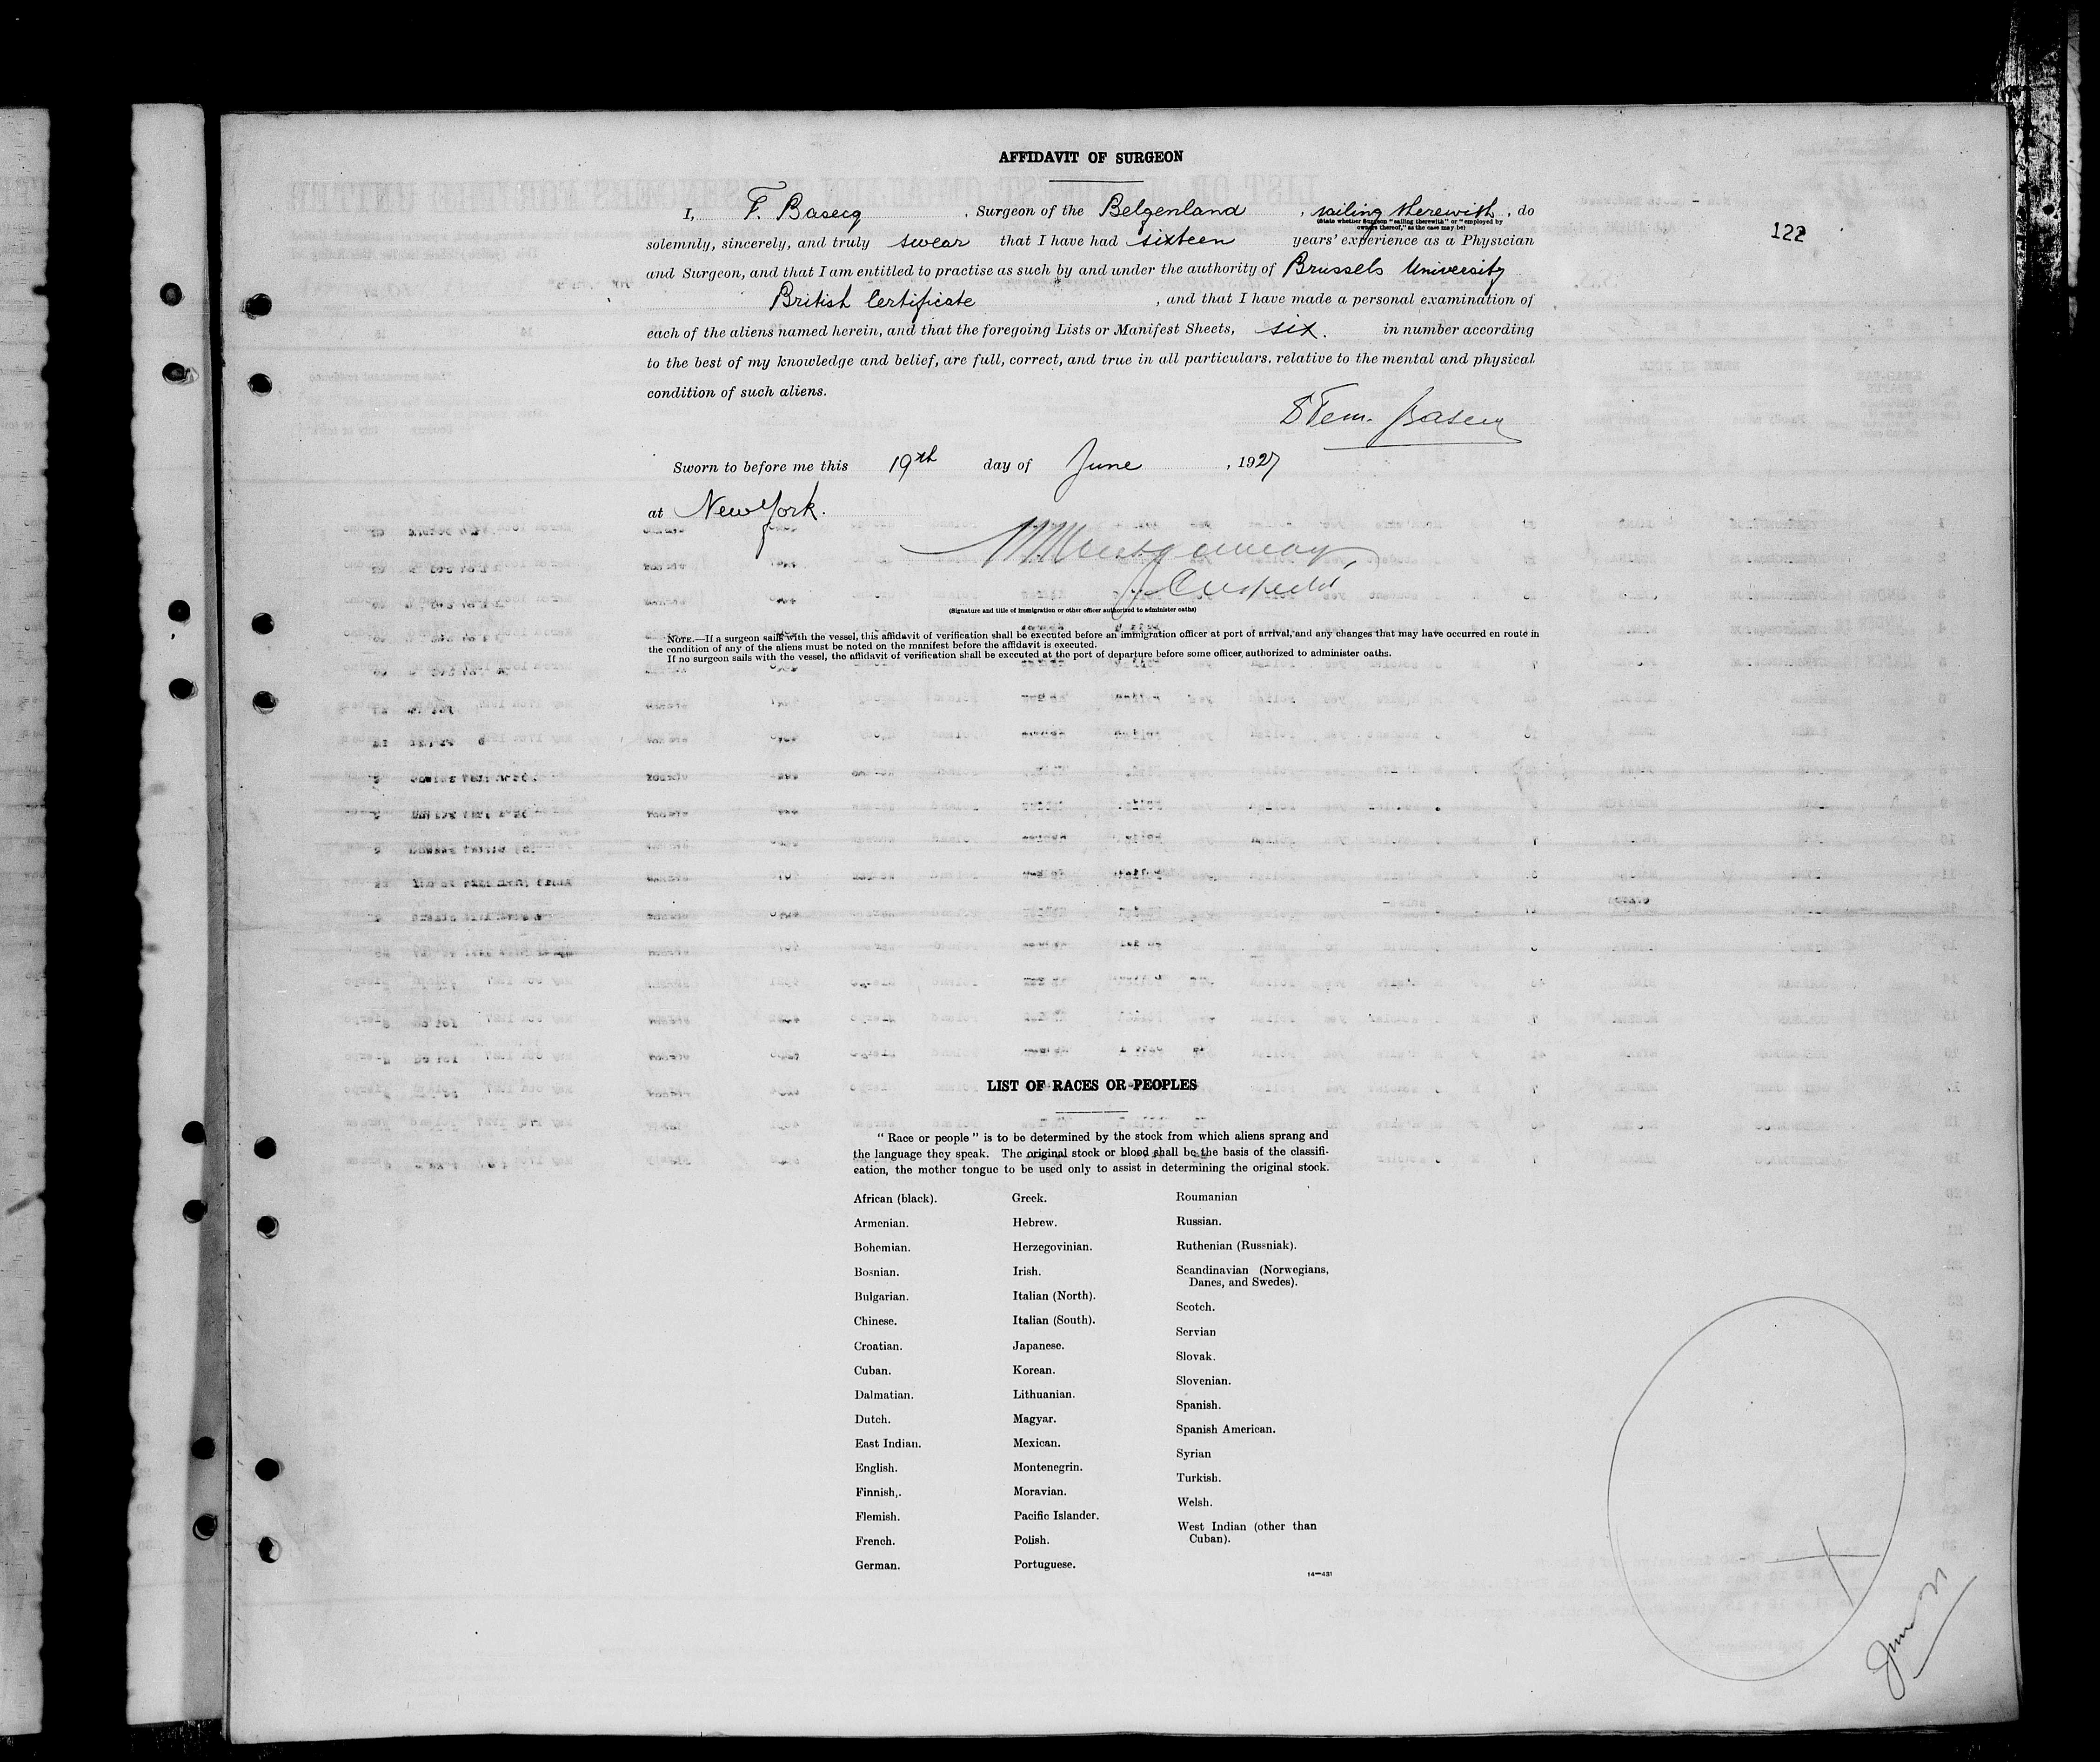 AFFIDAVIT OF SURGEON
122
I, F. Basecq, Surgeon of the Belgenland, sailing therewith, do
(State whether Surgeon "sailing therewith" or "employed by
owners thereof," as the case may be)
solemnly, sincerely, and truly swear that I have had sixteen years' experience as a Physician
and Surgeon, and that I am entitled to practise as such by and under the authority of Brussels University
British Certificate, and that I have made a personal examination of
each of the aliens named herein, and that the foregoing Lists or Manifest Sheets, six. in number according
to the best of my knowledge and belief, are full, correct, and true in all particulars, relative to the mental and physical
condition of such aliens.
Basecq
Sworn to before me this 19th day of June, 1927
at New York.
(Signature and title of immigration or other officer authorized to administer oaths)
NOTE.—If a surgeon sails with the vessel, this affidavit of verification shall be executed before an immigration officer at port of arrival, and any changes that may have occurred en route in
the condition of any of the aliens must be noted on the manifest before the affidavit is executed.
If no surgeon sails with the vessel, the affidavit of verification shall be executed at the port of departure before some officer, authorized to administer oaths.
LIST OF RACES OR PEOPLES
"Race or people" is to be determined by the stock from which aliens sprang and
the language they speak. The original stock or blood shall be the basis of the classifi-
cation, the mother tongue to be used only to assist in determining the original stock.
African (black).
Armenian.
Bohemian.
Bosnian.
Bulgarian.
Chinese.
Croatian.
Cuban.
Dalmatian.
Dutch.
East Indian.
English.
Finnish,.
Flemish.
French.
German.
Greek.
Hebrew.
Herzegovinian.
Irish.
Italian (North).
Italian (South).
Japanese.
Korean.
Lithuanian.
Magyar.
Mexican.
Montenegrin.
Moravian.
Pacific Islander.
Polish.
Portuguese.
Roumanian
Russian.
Ruthenian (Russniak).
Scandinavian (Norwegians,
Danes, and Swedes).
Scotch.
Servian
Slovak.
Slovenian.
Spanish.
Spanish American.
Syrian
Turkish.
Welsh.
West Indian (other than
Cuban).
14—431